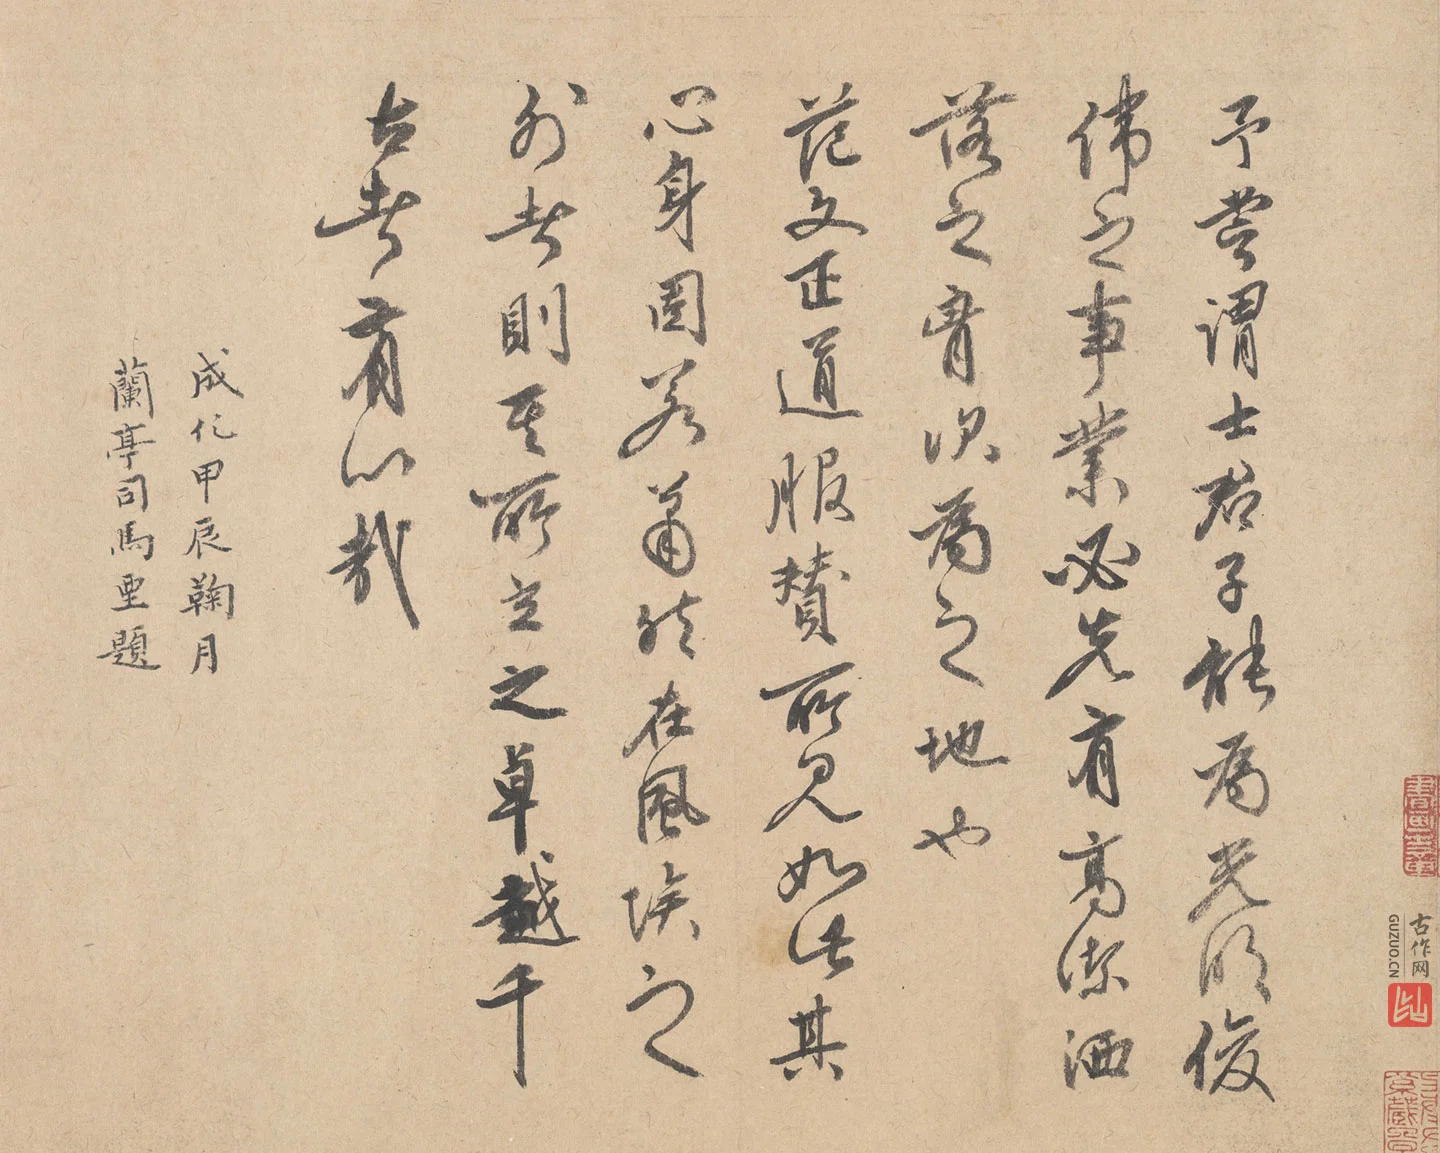 予嘗謂士君子能為光明俊
偉之事業必先有高潔洒
落之胷次為之地也
范文正道服贊所見如此其
心身固若蕭然在風埃之
外者則其所立之卓越千
古者有以哉
成化甲辰鞠月
蘭亭司馬垔題
古作网
GUZUO.CN